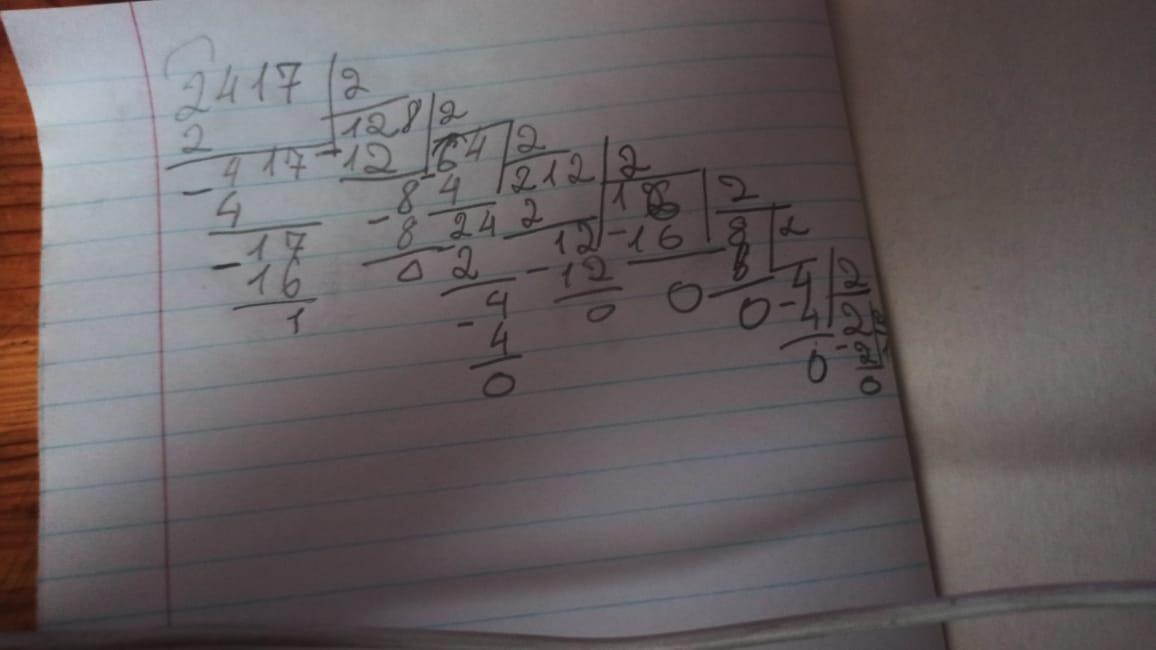 2417 2
2 128 2
- 417 - 12 64 2
4 8 4 212 2
- 17 - 8 24 2 2
16 0 - 2 12 - 16 8 2
1 4 - 12 0 8 4 2
- 4 0 0 - 4 2
0 0 - 2
0